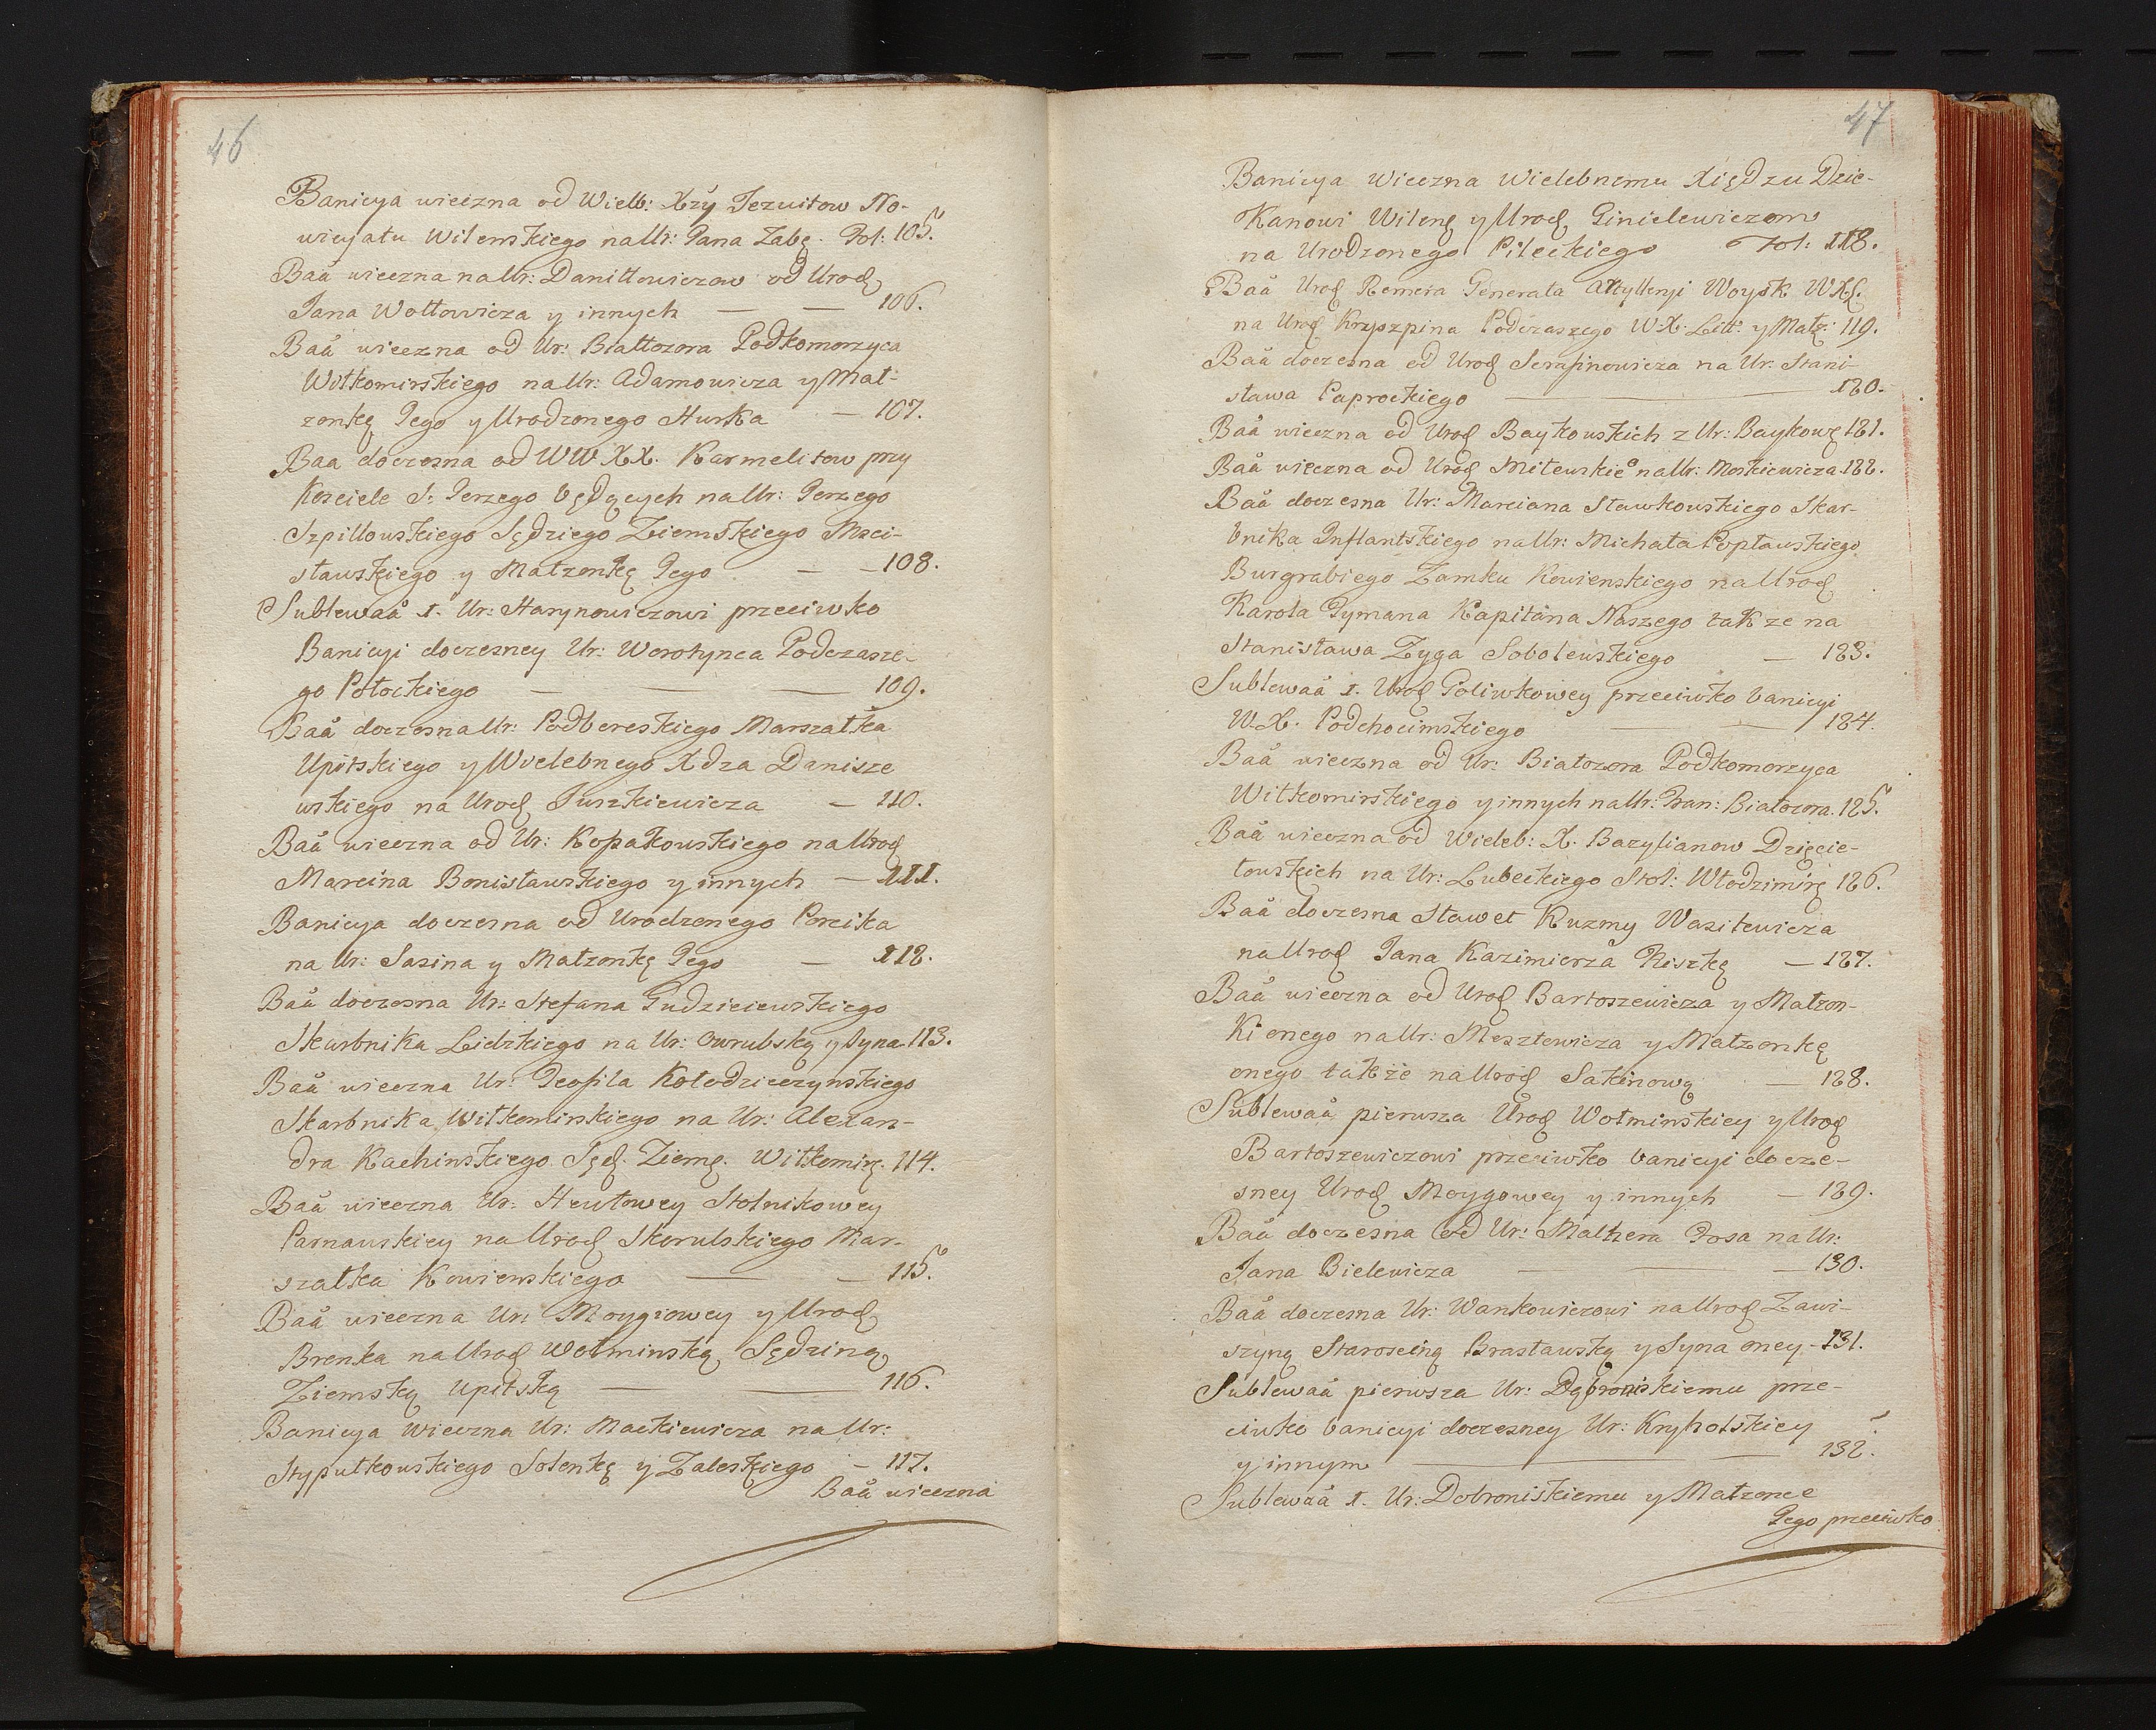 46
Banicya wieczna od Wielb: Xży Jezuitow No-
wicyatu Wilenskiego na Ur: Pana Zabę. Fol: 105.
Baã wieczna na Ur: Daniłłowiczow od Urod
Jana Wołłowicza y innych — — 106.
Baã wieczna od Ur: Białłozora Podkomorzyca
Wiłkomirskiego na Ur: Adamowicza y Mał-
żonkę Jego y Urodzonego Hurka — 107.
Baa doczesna od WW XX. Karmelitow przy
Kosciele S: Jerzego będących na Ur: Jerzego
Szpillowskiego Sędziego Ziemskiego Msci-
sławskiego y Małżonkę Jego — — 108.
Sublewaã 1. Ur: Harynowiczowi przeciwko
Banicyi doczesney Ur: Worotynca Podczasze-
go Połockiego — — — 109.
Baã doczesna Ur: Podbereskiego Marszałka
Upitskiego y Wielebnego Xdza Danisze
wskiego na Urod Juszkiewicza — 110.
Baã wieczna od Ur: Kopakowskiego na Urod
Marcina Bonisławskiego y innych — 111.
Banicya doczesna od Urodzonego Porcika
na Ur: Sasina y Małżonkę Jego — 112.
Baã doczesna Ur: Stefana Gudzieiewskiego
Skarbnika Lidzkiego na Ur: Owrubską y Syna 113.
Baã wieczna Ur: Teofila Kołodzieczynskiego
Skarbnika Wiłkomirskiego na Ur: Alexan-
dra Kachinskiego Sęd. Ziemę. Wiłkomirę. 114.
Baã wieczna Ur: Hewłowey Stolnikowey
Parnauskiey na Urod Skorulskiego Mar-
szałka Kowienskiego — — 115.
Baã wieczna Ur: Moygiowey y Urod
Brenka na Urod Wołminską Sędziną
Ziemską Upitską — — 116.
Banicya Wieczna Ur: Mackiewicza na Ur:
Stypułkowskiego Solenkę y Zaleskiego — 117.
Baã wieczna
47
Banicya Wieczna Wielebnemu Xiędzu Dzie-
Kanowi Wilenę y Urod Ginielewiczom
na Urodzonego Pileckiego Fol: 118.
Baã Urod Remera Generała Artylleryi Woysk WXL.
na Urod Kryszpina Podczaszego W.X. Litt: y Małż: 119.
Baã doczesna od Urod Serafinowicza na Ur: Stani-
sława Paprockiego — — 120.
Baã wieczna od Urod Baykowskich z Ur: Baykową 121.
Baã wieczna od Urod Milewskie na Ur: Moskiewicza. 122.
Baã doczesna Ur: Marciana Sławkowskiego Skar-
bnika Inflantskiego na Ur: Michała Popławskiego
Burgrabiego Zamku Kowienskiego na Urod
Karola Tymana Kapitana Naszego także na
Stanisława Zyga Sobolewskiego — 123.
Sublewaã 1. Urod Poliwkowey przeciwko banicyi
W.X. Podchocimskiego — 124.
Baã wieczna od Ur: Białozora Podkomorzyca
Wiłkomirskiego y innych na Ur: Fran: Białozora. 125.
Baã wieczna od Wieleb: X. Bazylianow Dzięcie-
łowskich na Ur: Lubeckiego Stol: Włodzimirę 126.
Baã doczesna Sławet Kuzmy Wasilewicza
na Urod Jana Kazimierza Kiszkę — 127.
Baã wieczna od Urod Bartoszewicza y Małżon-
Ki onego na Ur: Meszlewicza y Małżonkę
onego także na Urod Sakinową — 128.
Sublewaã pierwsza Urod Wołminskiey y Urod
Bartoszewiczowi przeciwko banicyi docze-
sney Urod Moygowey y innych — 129.
Baã doczesna od Ur: Malhera Fosa na Ur:
Jana Bielewicza — — — 130.
Baã doczesna Ur: Wankowiczowi na Urod Zawi-
szyną Starościną Brasławską y Syna oney - 131.
Sublewaã pierwsza Ur: Dąbroniskiemu prze-
ciwko banicyi doczesney Ur: Kryholskiey
y innym — — 132.
Sublewaã 1. Ur: Dobroniskiemu y Małżonce
Jego przeciwko